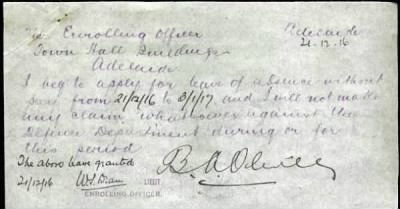 The Enrolling Officer
Adelaide
Town Hall Buildings
21-12-16
Adelaide
I beg to apply for leave of absence without
pay from 21/12/16 to 3/1/17, and I will not make
any claim whatsoever against the
Defence Department during or for
this period
The above leave granted
21/12/16
LIEUT.
ENROLLING OFFICER.